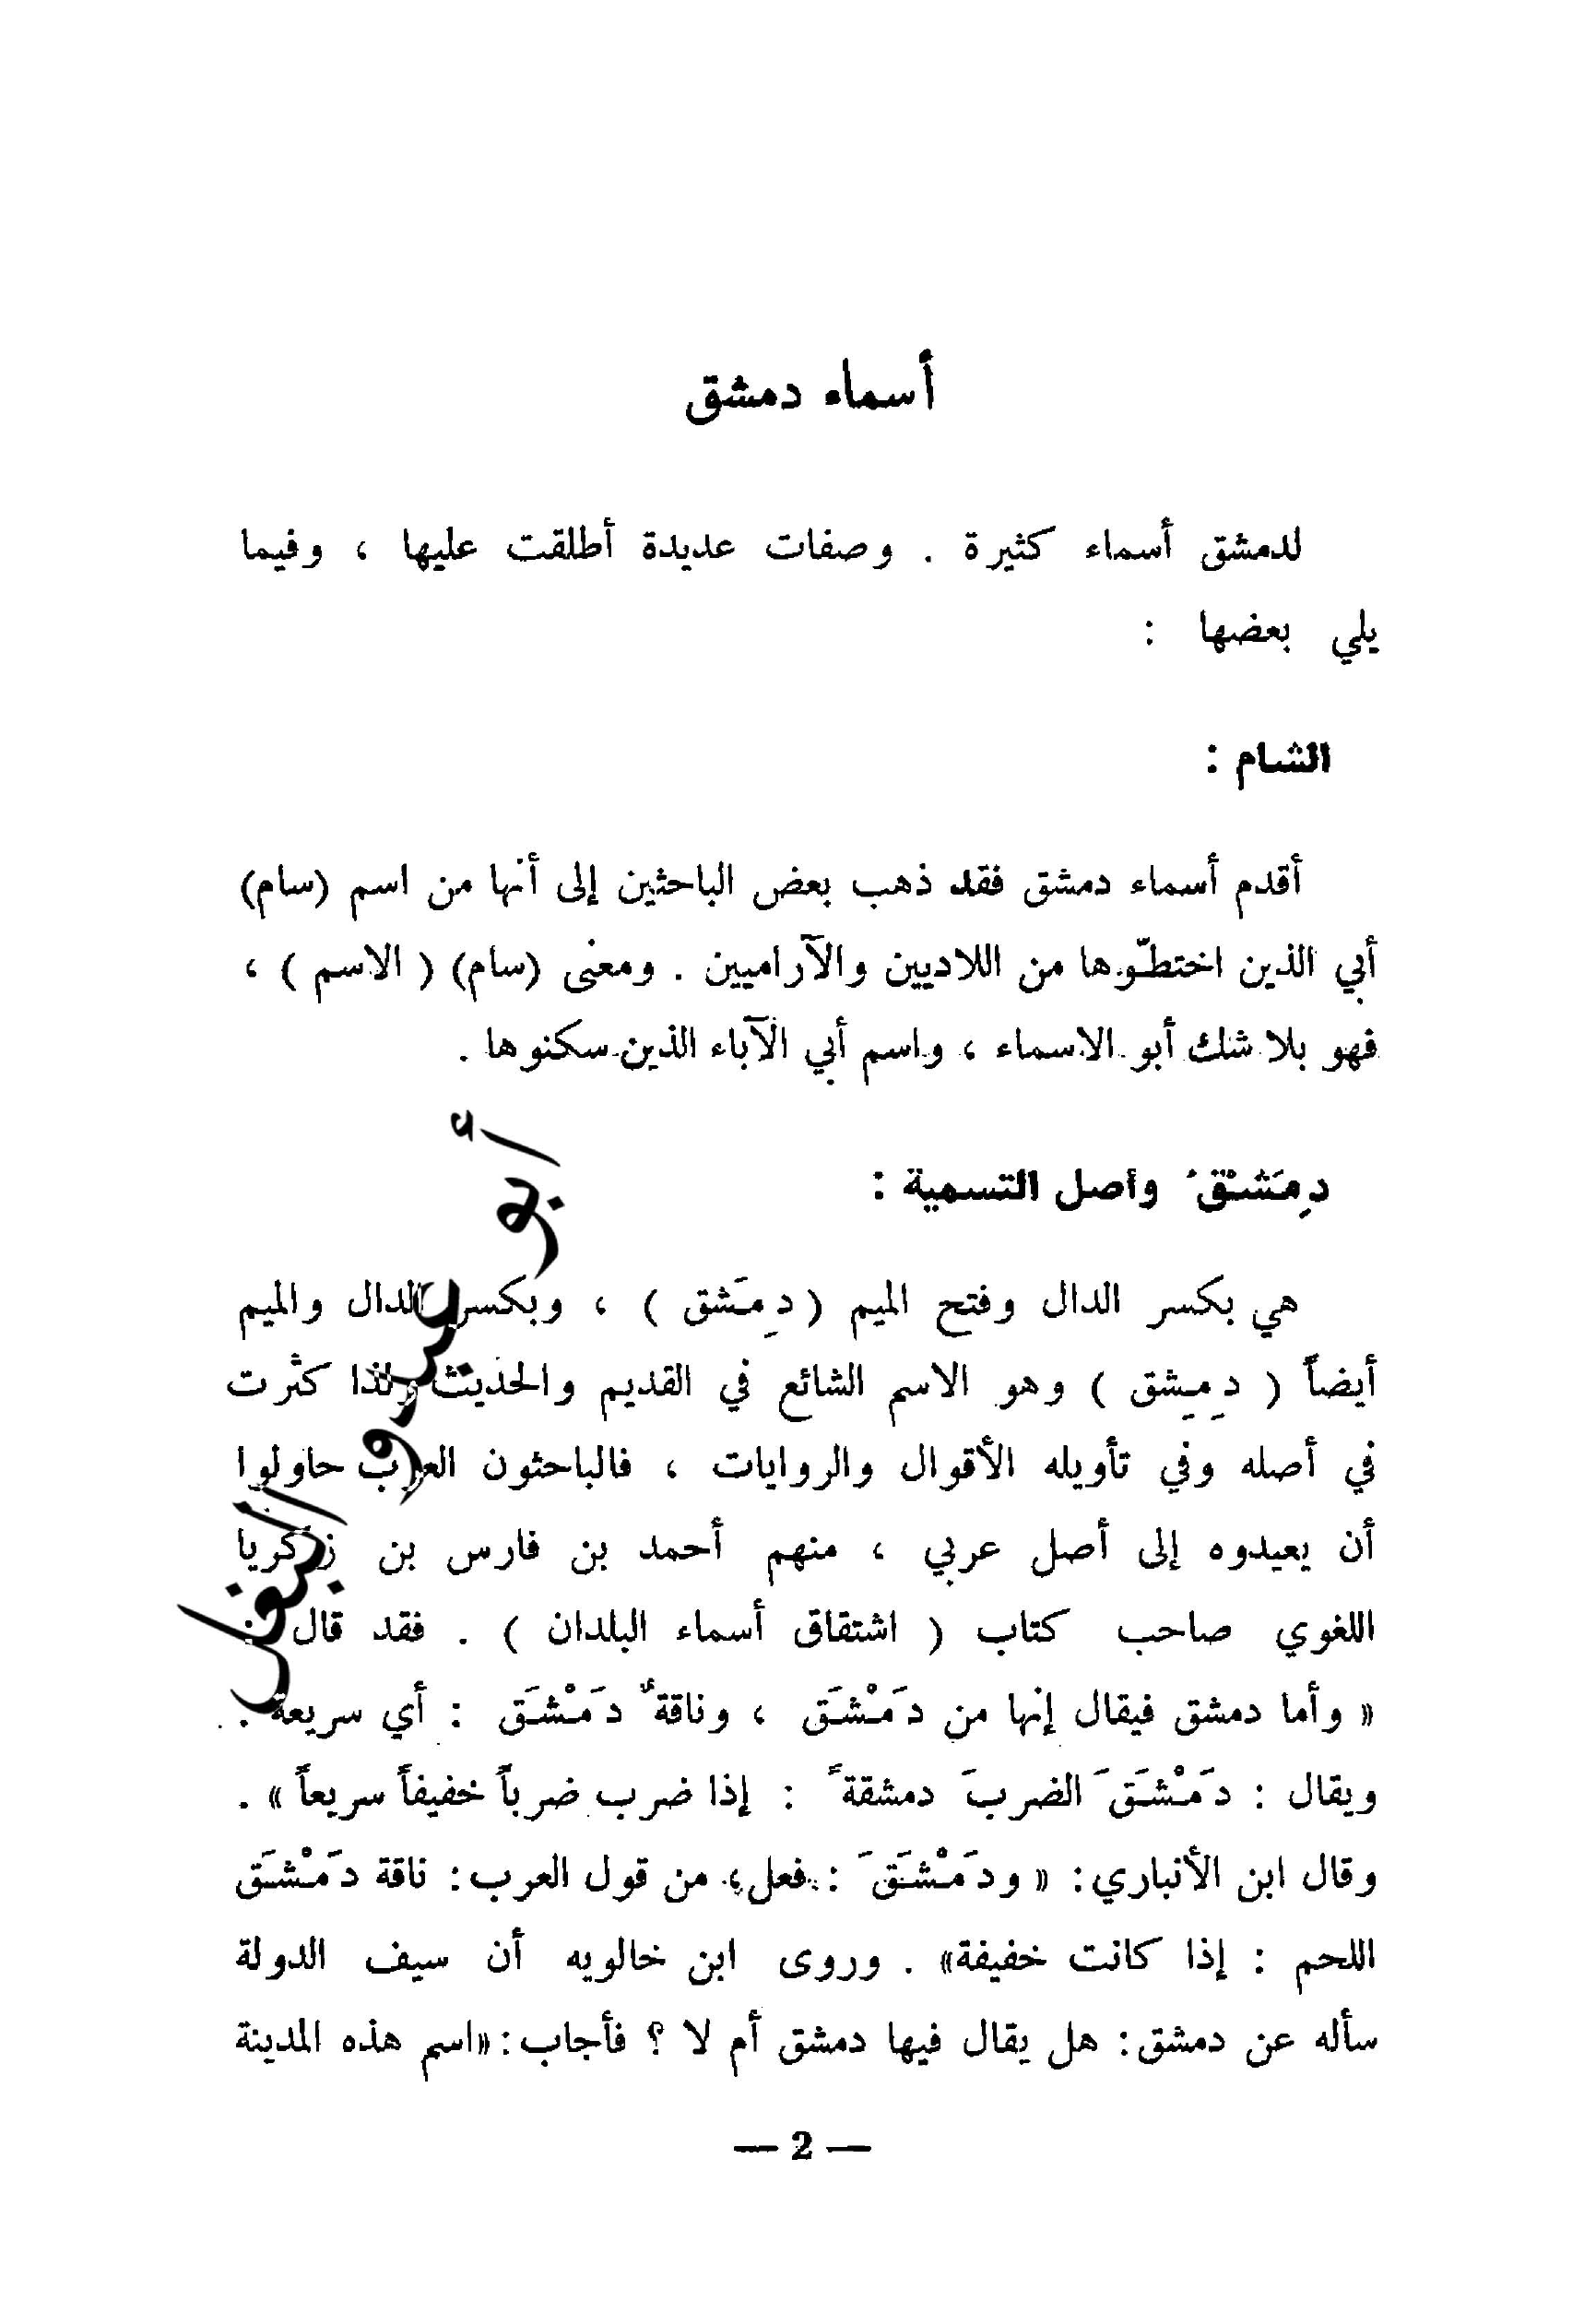 أسماء دمشق
لدمشق أسماء كثيرة . وصفات عديدة أطلقت عليها ، وفيما
يلي بعضها :
الشام :
أقدم أسماء دمشق فقد ذهب بعض الباحثين إلى أنها من اسم (سام)
أبي الذين اختطّوها من اللاديين والآراميين . ومعنى (سام) ( الاسم ) ،
فهو بلا شك أبو الاسماء ، واسم أبي الآباء الذين سكنوها .
دِمَشْقُ وأصل التسمية :
هي بكسر الدال وفتح الميم ( دِمَشق ) ، وبكسر الدال والميم
أيضاً ( دِمِشق ) وهو الاسم الشائع في القديم والحديث ولذا كثرت
في أصله وفي تأويله الأقوال والروايات ، فالباحثون العرب حاولوا
أن يعيدوه إلى أصل عربي ، منهم أحمد بن فارس بن زكريا
اللغوي صاحب كتاب ( اشتقاق أسماء البلدان ) . فقد قال :
« وأما دمشق فيقال إنها من دَمْشَق ، وناقةٌ دَمْشَق : أي سريعة .
ويقال : دَمْشَقَ الضربَ دمشقةً : إذا ضرب ضرباً خفيفاً سريعاً » .
وقال ابن الأنباري: « ودَمْشَقَ : فعل ، من قول العرب : ناقة دَمْشَق
اللحم : إذا كانت خفيفة» . وروى ابن خالويه أن سيف الدولة
سأله عن دمشق : هل يقال فيها دمشق أم لا ؟ فأجاب : «اسم هذه المدينة
— 2 —
أبو عبدو البغل